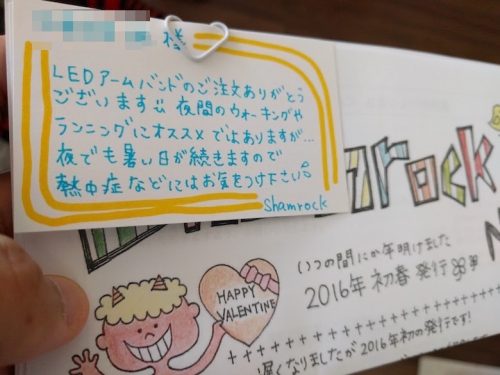 様
LEDアームバンドのご注文ありがとう
ございます 夜間のウォーキングや
ランニングにオススメではありますが…
夜でも暑い日が続きますので
熱中症などにはお気をつけ下さい。
Shamrock
rock
いつの間にか年明けました
2016年 初春 発行
HAPPY
VALENTINE
遅くなりましたが2016年初の発行です!